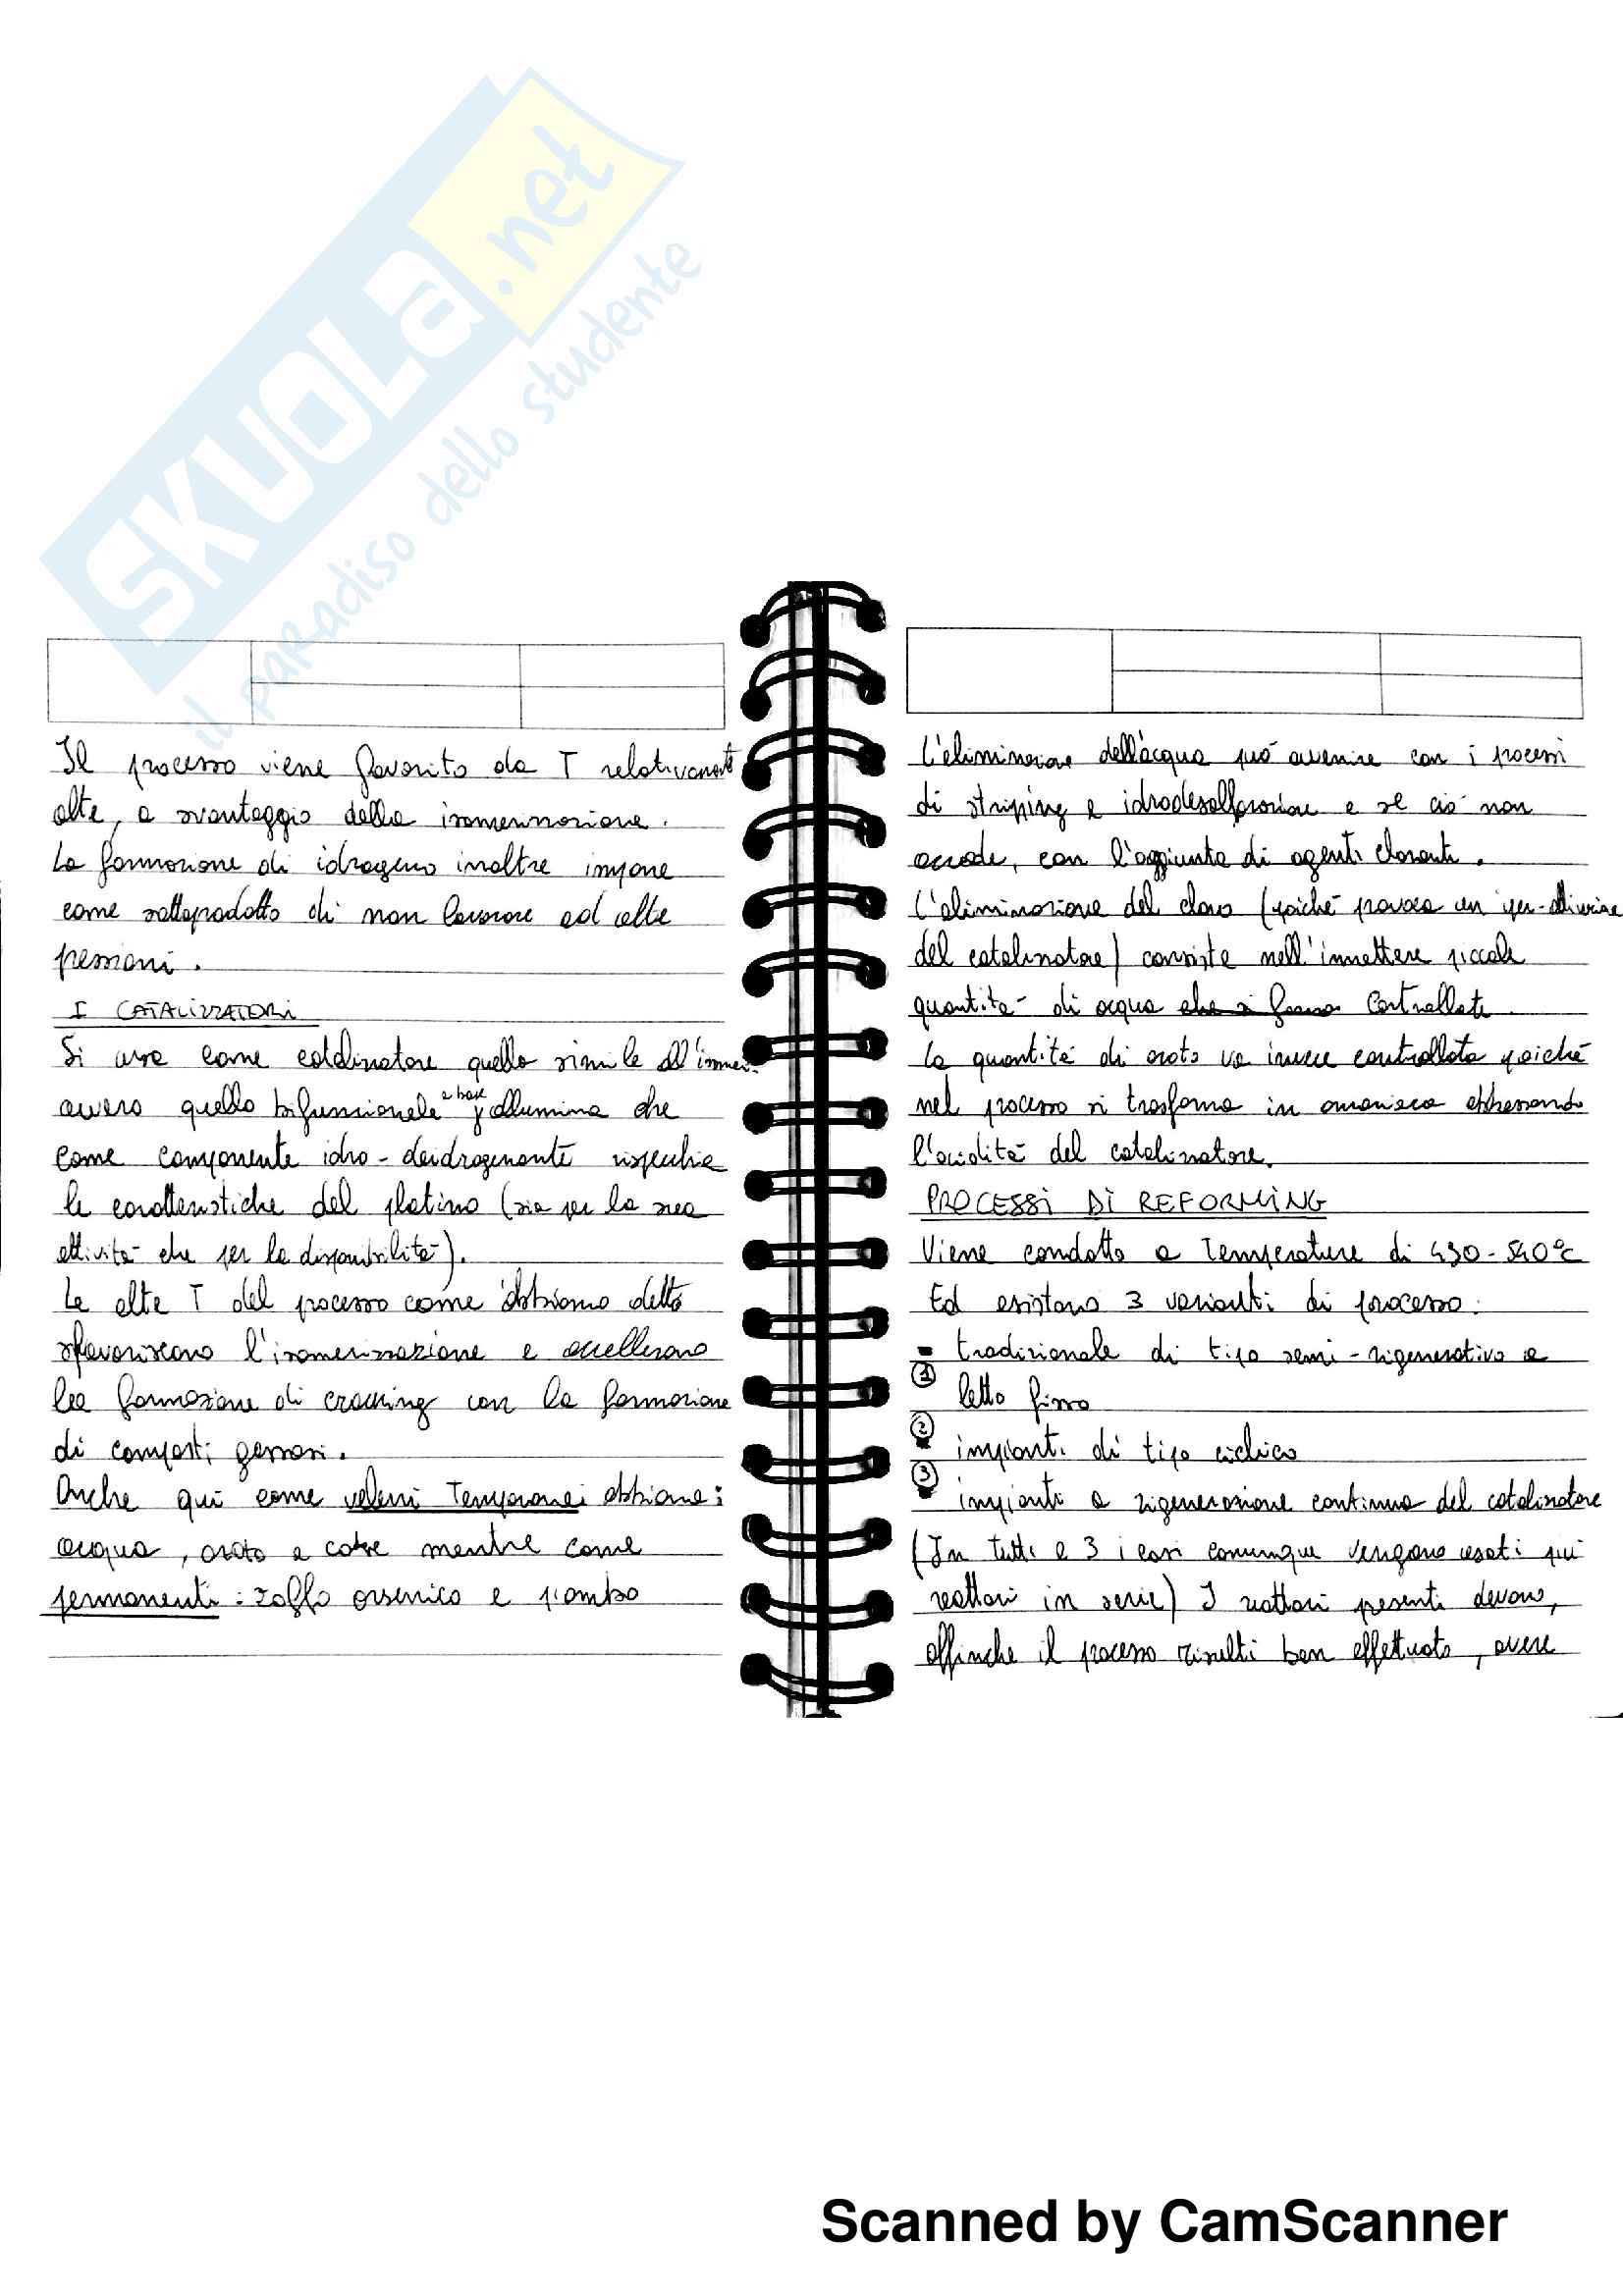 SKUOLA.net
il paradiso dello studente
Il processo viene favorito da T relativamente
alte, a svantaggio della isomerizzazione.
La formazione di idrogeno inoltre impone
come sottoprodotto di non lavorare ad alte
pressioni.
I CATALIZZATORI
Si usa come catalizzatore quello simile all'isomer.
ovvero quello bifunzionale a base γ allumina che
come componente idro-deidrogenante rispecchia
le caratteristiche del platino (sia per la sua
attività che per la disponibilità).
Le alte T del processo come abbiamo detto
sfavoriscono l'isomerizzazione e accellerano
la formazione di cracking con la formazione
di composti gassosi.
Anche qui come veleni temporanei abbiamo:
acqua, azoto e coke mentre come
permanenti: zolfo arsenico e piombo
L'eliminazione dell'acqua può avvenire con i processi
di stripping e idrodesolforazione e se ciò non
accade, con l'aggiunta di agenti cloranti.
L'eliminazione del cloro (poiché provoca un iper-attivazione
del catalizzatore) consiste nell'immettere piccole
quantità di acqua che si controllate
La quantità di azoto va invece controllata poiché
nel processo si trasforma in ammoniaca abbassando
l'acidità del catalizzatore.
PROCESSI DI REFORMING
Viene condotto a temperature di 430-540°C
Ed esistono 3 varianti di processo:
① tradizionale di tipo semi-rigenerativo a
letto fisso
② impianti di tipo ciclico
③ impianti a rigenerazione continua del catalizzatore
(In tutti e 3 i casi comunque vengono usati più
reattori in serie) I reattori presenti devono,
affinche il processo risulti ben effettuato, avere
Scanned by CamScanner